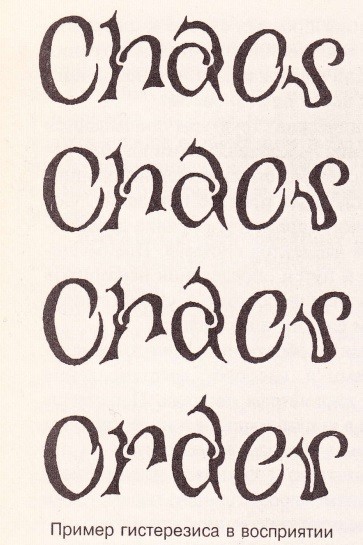 Chaos
Chaos
Chaos
Order
Пример гистерезиса в восприятии